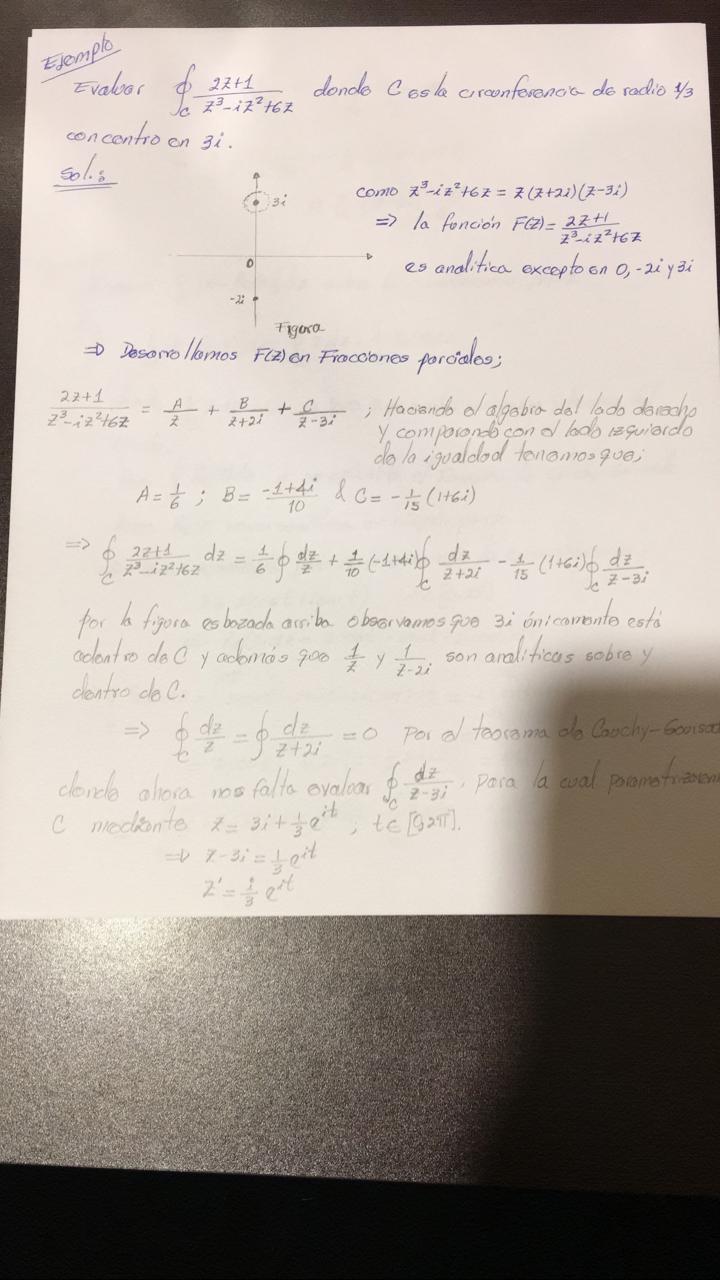 Ejemplo
Evaluar ∮_C (2z+1)/(z³-iz²+6z) donde C es la circunferencia de radio 1/3
con centro en 3i.
Sol.:
3i
0
-2i
Figura
como z³-iz²+6z = z(z+2i)(z-3i)
=> la función F(z) = (2z+1)/(z³-iz²+6z)
es analítica excepto en 0, -2i y 3i
=> Desarrollamos F(z) en Fracciones parciales;
(2z+1)/(z³-iz²+6z) = A/z + B/(z+2i) + C/(z-3i) ; Haciendo el algebra del lado derecho
y comparando con el lado izquierdo
de la igualdad tenemos que;
A = 1/6 ; B = (-1+4i)/10 & C = -1/15 (1+6i)
=> ∮_C (2z+1)/(z³-iz²+6z) dz = 1/6 ∮ dz/z + 1/10 (-1+4i) ∮_C dz/(z+2i) - 1/15 (1+6i) ∮_C dz/(z-3i)
por la figura esbozada arriba observamos que 3i únicamente está
adentro de C y además que 1/z y 1/(z-2i) son analíticas sobre y
dentro de C.
=> ∮_C dz/z = ∮ dz/(z+2i) = 0 Por el teorema de Cauchy-
donde ahora nos falta evaluar ∮_C dz/(z-3i), para la cual
C mediante z = 3i + 1/3 e^{it} ; t ∈ [0,2π].
=> z-3i = 1/3 e^{it}
z' = i/3 e^{it}